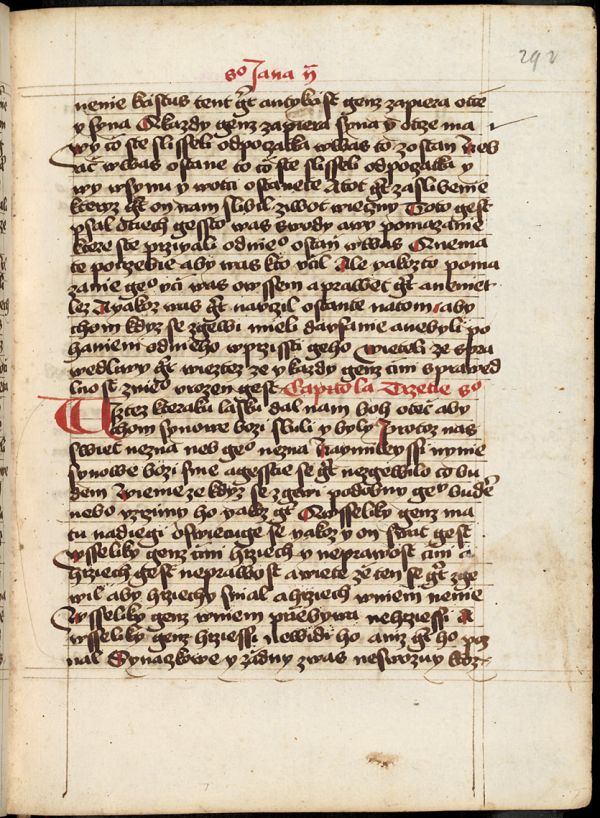 292
so Jana ij
nenie kristus tent gt antykrist genz zapiera otce
y syna A kazdy genz zapiera syna y otcze ma
wy co ste slisseli odpoczatka wwas to zostan Neb
wwas ostane to co ste slisseli odpoczatka y
wy wsynu y wotci ostanete A tot gt zaslibenie
kterez gt on nam slibil ziwot wieczny Toto gest
psal o tiech gessto was swody awy pomazanie
ktere ste przigali odnieo ostan wwas A nema
te potrzebie aby was kto vcil Ale yakozto poma
zanie geo vci was owssem aprawet gt anemet
lez A yakoz was gt nauczil ostante natom aby
chom kdyz se zgewi mieli daufanie anebyli po
hanieni odnieho wprzissti geho wieteli ze spra
wedliwy gt wieztez ze y kazdy genz cini sprawed
lnost znieo vrozen gest Capitola Trzetie so
Wiztez kteraku lasku dal nam boh otec aby
chom synowe bozi sluli y byly A protoz nas
swiet nezna neb geo nezna Naymileyssi nynie
synowe bozi sme agesstie se gt nezgewilo to bu
dem Wieme ze kdyz se zgewi podobny gey budem
nebo vzrzimy ho yakz gt A wsseliky genz ma
tu nadiegi oswiecuge se yakoz y on swat gest
Wsseliky genz cini hrziech y neprawost cini a
hrziech gest neprawost awiete ze ten se gt zge
wil aby hrziechy snial ahrziech wniem nenie
Wsseliky genz wniem przebywa nehrziessi A
wsseliky genz hrziessi Newidi ho aniz gt ho poz
nal Synaczkowe y zadny zwas neswozuy kdoz